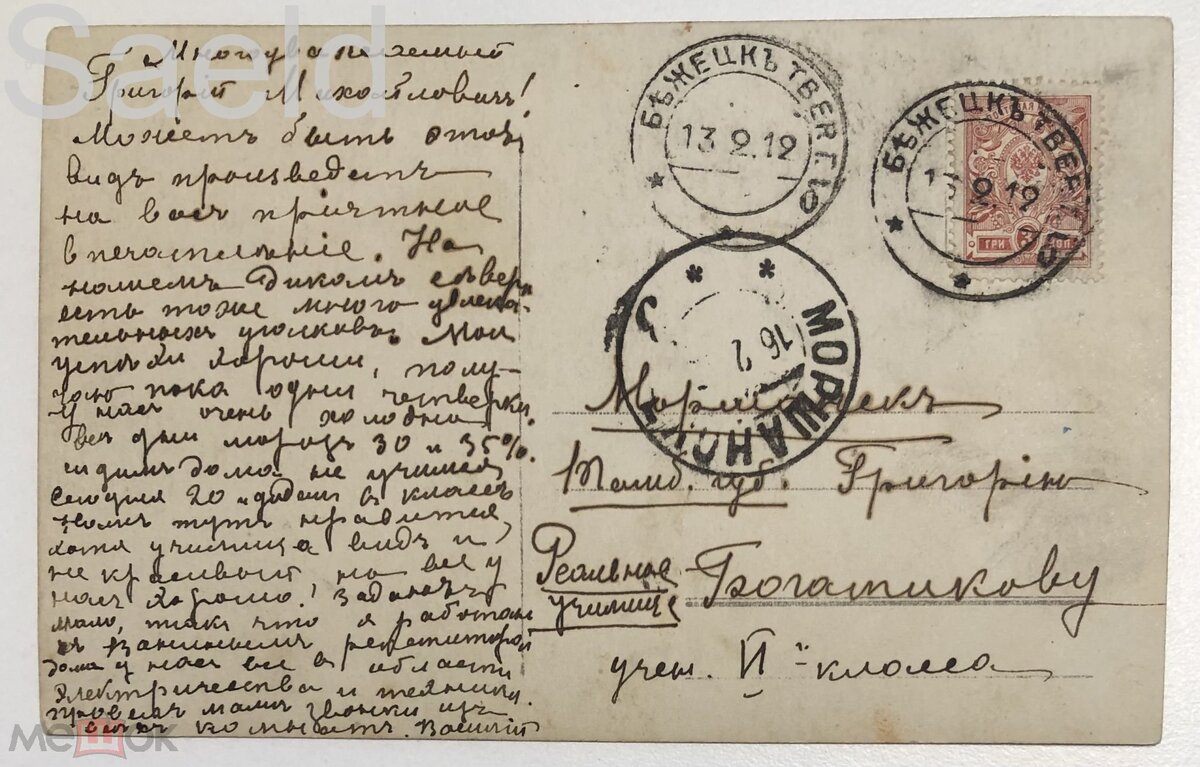 Saeld
Многоуважаемый
Григорій Михайловичъ!
Можетъ быть этотъ
видъ произведетъ
на васъ пріятное
впечатлѣніе. На
нашемъ дикомъ сѣвере
есть тоже много увлека-
тельныхъ уголковъ. Мои
успѣхи хороши, полу-
чаю пока одни четверки.
У насъ очень холодно
все дни морозъ 30 и 35%.
сидимъ дома не учимся
Сегодня 20 и идемъ въ классъ
Намъ тутъ нравится,
хотя училища видъ и
не красивый, но все у
насъ хорошо! Задаютъ
мало, такъ что я работаю
съ Ваниным репетитором
дома у насъ все въ области
Электричества и техники.
провелъ мамѣ звонки изъ
комнатъ. Василій
БѢЖЕЦКЪ ТВЕР. Г.
13 2 12
БѢЖЕЦКЪ ТВЕР. Г.
13 2 12
ГРИ 3 КОП.
МОРШАНСКЪ
16 2
Моршанскъ
Тамб. губ. Григорію
Реальное
училище
Богатикову
учен. VI - класса
мешок